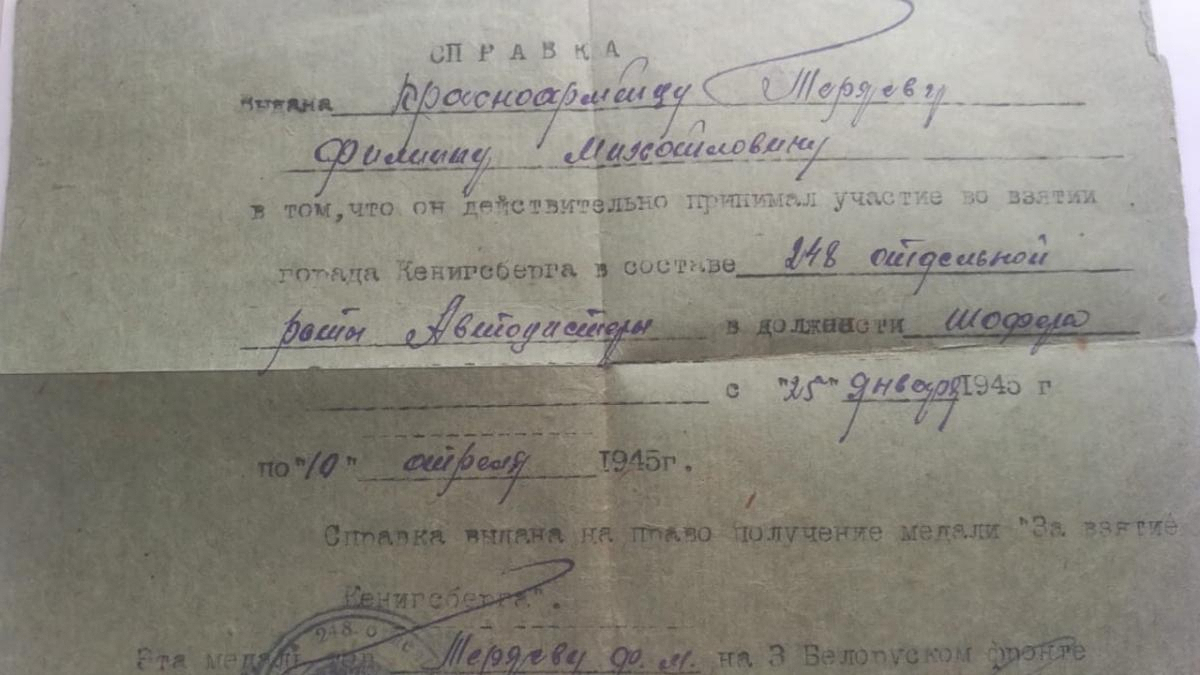 СПРАВКА
выдана Красноармейцу Теряеву
Филиппу Михайловичу
в том, что он действительно принимал участие во взятии
города Кенигсберга в составе 248 отдельной
роты Автоцистерн в должности Шофера
с "25" Января 1945 г
по "10" апреля 1945г.
Справка выдана на право получение медали "За взятие
Кенигсберга".
248 О
Эта медаль Теряеву Ф. М. на 3 Белорусском фронте